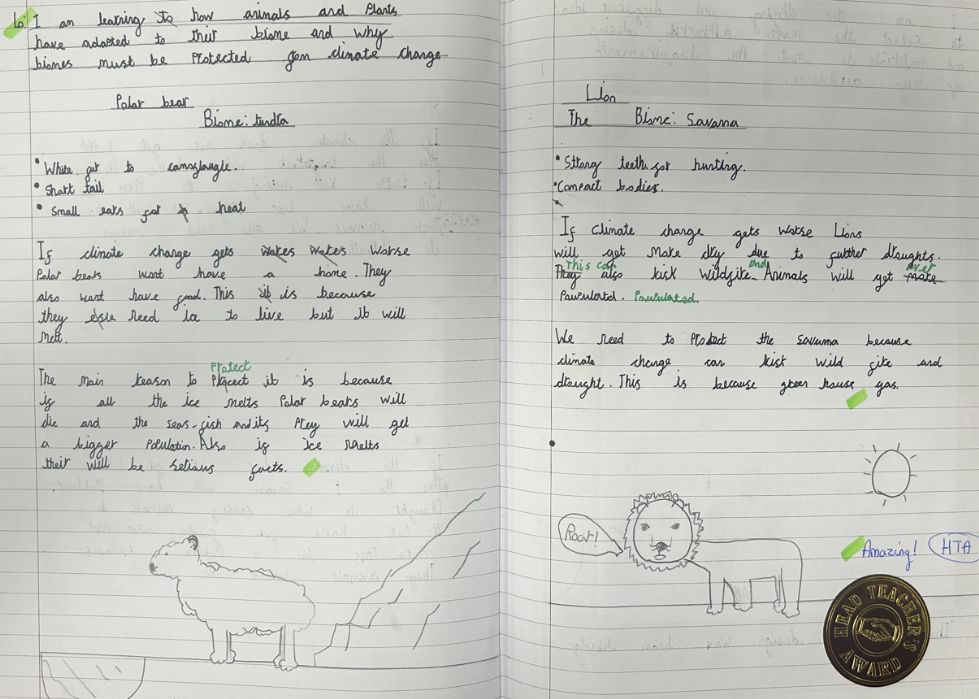 Lo: I am learning to how animals and Plants
have adapted to their biome and why
biomes must be Protected from climate change
Polar bear
Biome: tundra
• White fur to camoflaugle.
• Short tail
• Small ears for heat
If climate change gets Worse
Polar bears wont have a home. They
also wont have food. This is because
they need ice to live but it will
Melt.
Protect
The main reason to it is because
if all the ice melts Polar bears will
die and the seas-fish and its Prey will get
a bigger Population. Also if ice Melts
their will be serious facts.
Lion
The Biome: Savana
• Strong teeth for hunting.
• Compact bodies.
If Climate change gets Worse Lions
will get More dry due to further draughts.
This can and over
They also risk Wildfire Animals will get
Pawpulated. Pawpulated.
We need to Protect the savanna because
climate change can risk wild fire and
draught. This is because green house gas.
Roar!
Amazing! HTA
HEAD TEACHER'S
AWARD